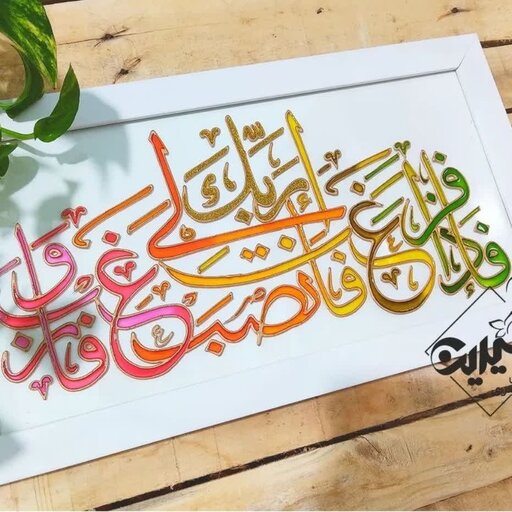 فإذا فرغت فانصب وإلى ربك فارغب